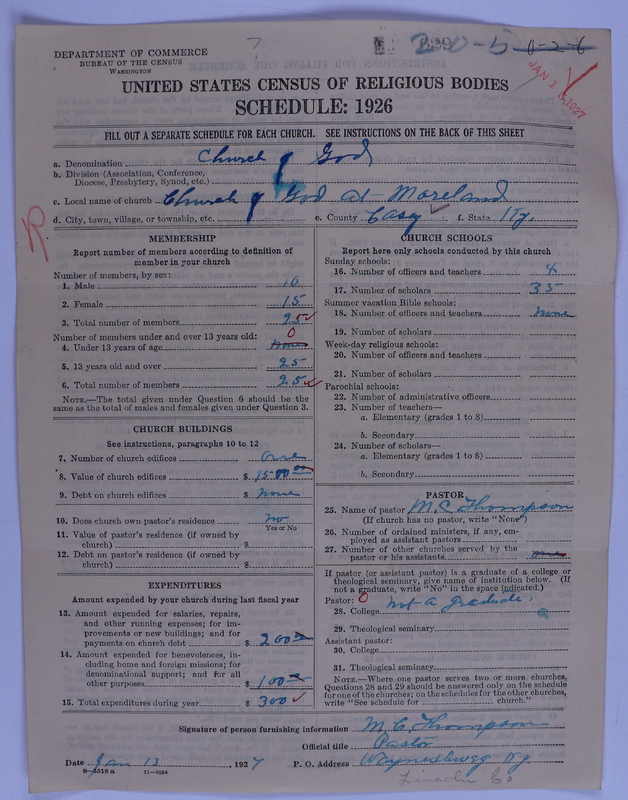 DEPARTMENT OF COMMERCE
BUREAU OF THE CENSUS
WASHINGTON
0-2-6
JAN 1 1927
UNITED STATES CENSUS OF RELIGIOUS BODIES
SCHEDULE: 1926
FILL OUT A SEPARATE SCHEDULE FOR EACH CHURCH. SEE INSTRUCTIONS ON THE BACK OF THIS SHEET
a. Denomination Church of God
b. Division (Association, Conference,
Diocese, Presbytery, Synod, etc.)
c. Local name of church Church of God at Moreland
d. City, town, village, or township, etc. e. County Casey f. State Ky.
R.
MEMBERSHIP
Report number of members according to definition of
member in your church
Number of members, by sex:
1. Male 10
2. Female 15
3. Total number of members 25
Number of members under and over 13 years old: 0
4. Under 13 years of age none
5. 13 years old and over 25
6. Total number of members 25
NOTE.—The total given under Question 6 should be the
same as the total of males and females given under Question 3.
CHURCH BUILDINGS
See instructions, paragraphs 10 to 12
7. Number of church edifices One
8. Value of church edifices $ 1500 00
9. Debt on church edifices $ none
10. Does church own pastor's residence no
Yes or No
11. Value of pastor's residence (if owned by
church) $
12. Debt on pastor's residence (if owned by
church) $
EXPENDITURES
Amount expended by your church during last fiscal year
13. Amount expended for salaries, repairs,
and other running expenses; for im-
provements or new buildings; and for
payments on church debt $ 200
14. Amount expended for benevolences, in-
cluding home and foreign missions; for
denominational support; and for all
other purposes $ 100
15. Total expenditures during year $ 300
CHURCH SCHOOLS
Report here only schools conducted by this church
Sunday schools:
16. Number of officers and teachers 4
17. Number of scholars 35
Summer vacation Bible schools:
18. Number of officers and teachers none
19. Number of scholars
Week-day religious schools:
20. Number of officers and teachers
21. Number of scholars
Parochial schools:
22. Number of administrative officers
23. Number of teachers—
a. Elementary (grades 1 to 8)
b. Secondary
24. Number of scholars—
a. Elementary (grades 1 to 8)
b. Secondary
PASTOR
25. Name of pastor M. C. Thompson
(If church has no pastor, write "None")
26. Number of ordained ministers, if any, em-
ployed as assistant pastors
27. Number of other churches served by the
pastor or his assistants none
If pastor (or assistant pastor) is a graduate of a college or
theological seminary, give name of institution below. (If
not a graduate, write "No" in the space indicated.)
Pastor: 0
28. College not a graduate.
29. Theological seminary
Assistant pastor:
30. College
31. Theological seminary
NOTE.—Where one pastor serves two or more churches,
Questions 28 and 29 should be answered only on the schedule
for one of the churches; on the schedules for the other churches,
write "See schedule for church."
Signature of person furnishing information M. C. Thompson
Official title Pastor
Date Jan 13, 1927 P. O. Address Waynesburg Ky
8-5518a 11-9084
Lincoln Co